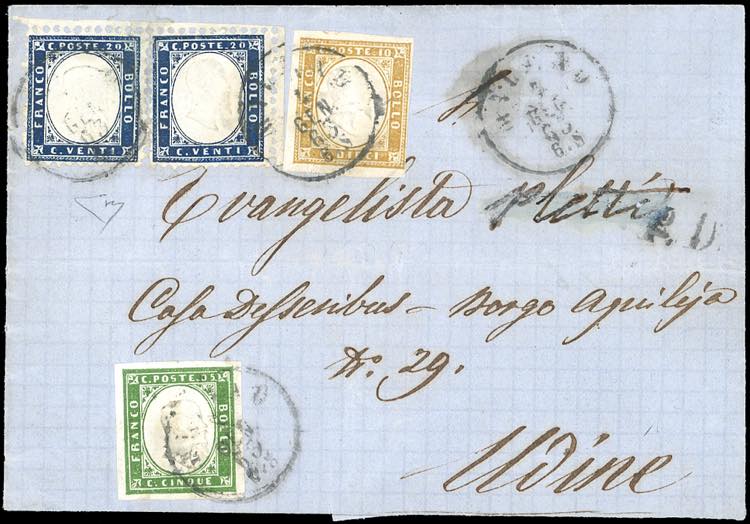 C. POSTE. 20
FRANCO
BOLLO
C. VENTI
C. POSTE. 20
FRANCO
BOLLO
C. VENTI
C. POSTE. 10
FRANCO
BOLLO
C. DIECI
MILANO
P. D.
Evangelista Pletti
Casa Desseribus – Borgo Aquileja
No. 29.
Udine
C. POSTE. 05
FRANCO
BOLLO
C. CINQUE